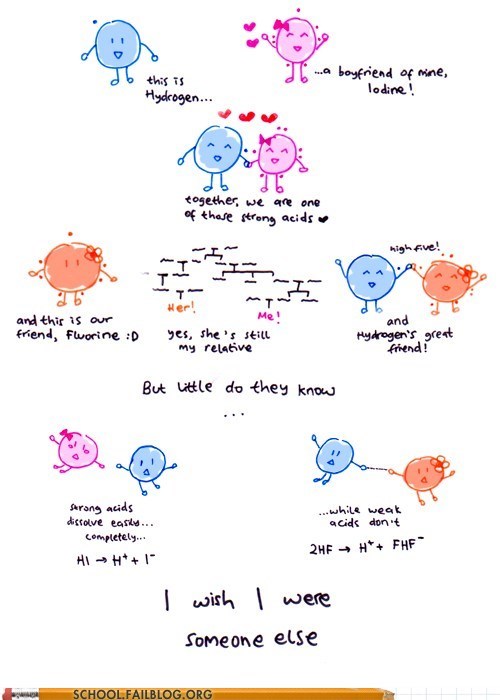 this is
Hydrogen...
...a boyfriend of mine,
Iodine!
together, we are one
of those strong acids ❤
Her!
Me!
high five!
and this is our
friend, Fluorine :D
yes, she's still
my relative
and
Hydrogen's great
friend!
But little do they know
...
strong acids
dissolve easily...
completely...
HI → H⁺ + I⁻
...while weak
acids don't
2HF → H⁺ + FHF⁻
I wish I were
someone else
SCHOOL.FAILBLOG.ORG